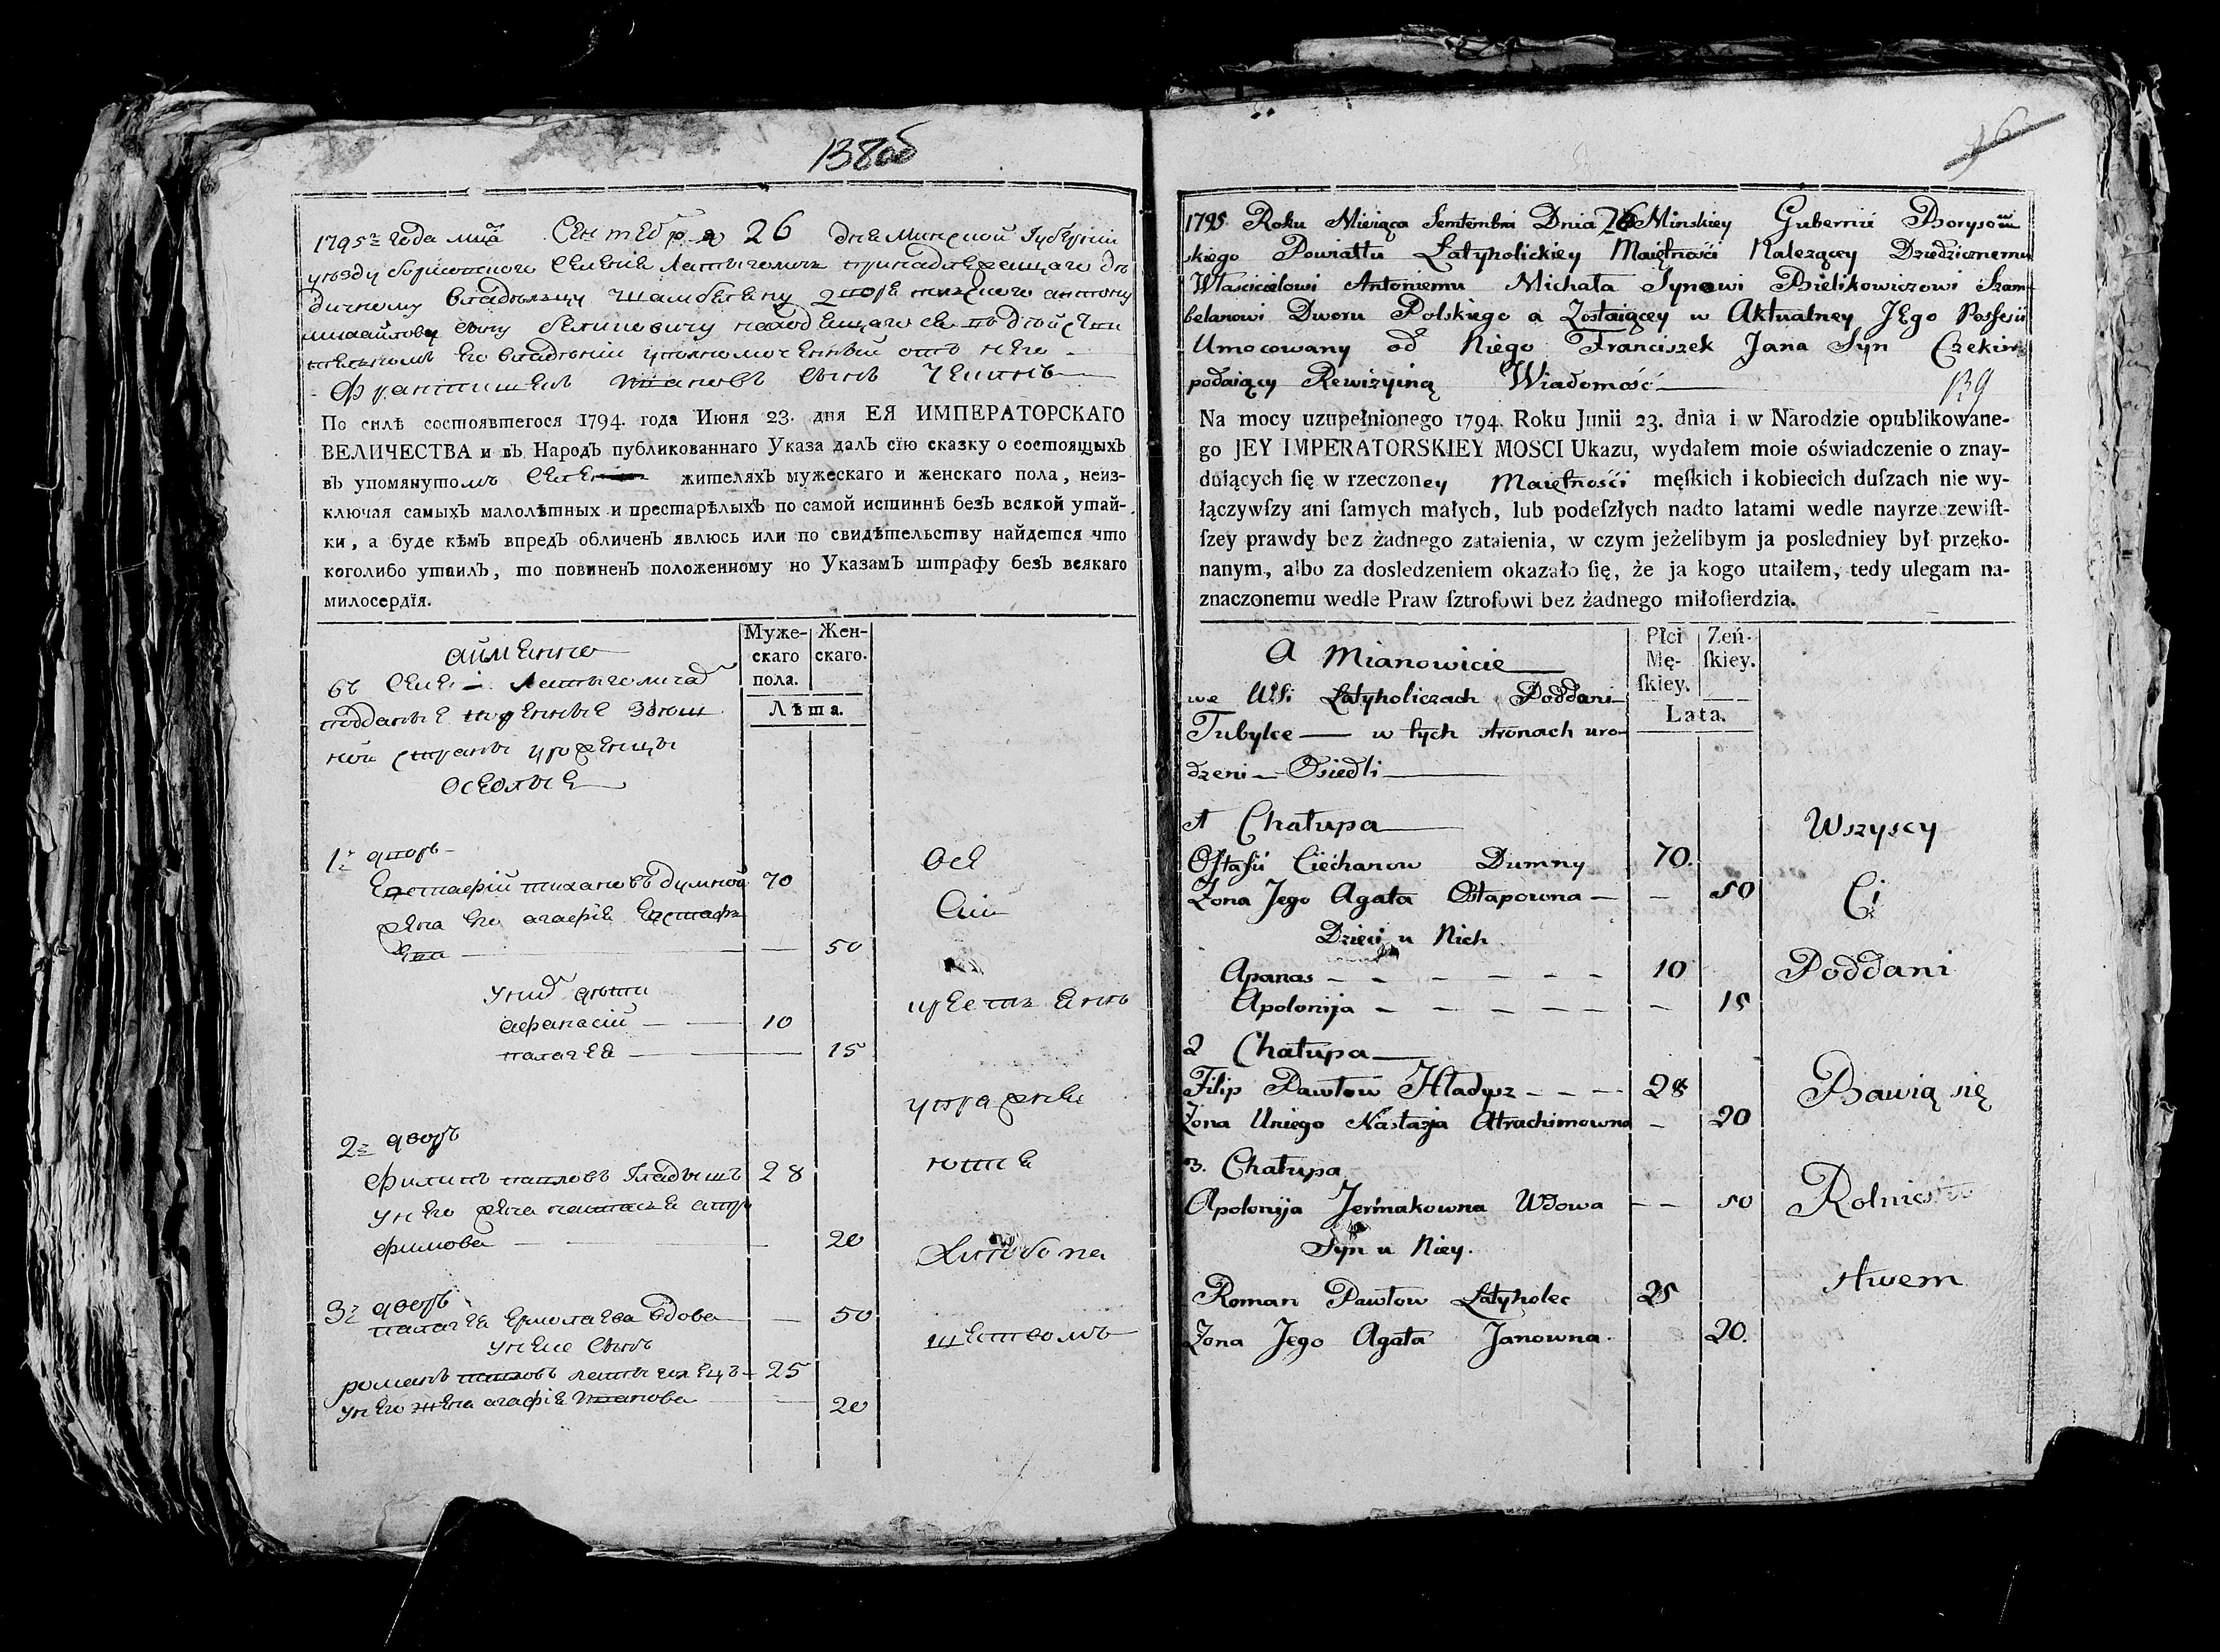 138об
1795г года мца Сентебря 26 дня Минской Губернии
уезду борисовского селения Латыголичъ принадлежащаго дѣ
дичному владѣльцу Шамбеляну двора полского антону
михайлову сыну беликовичу находящагося въ дѣйстви
тельномъ его владѣнии уполномоченный отъ него
Францишекъ Ивановъ сынъ
По силѣ состоявшегося 1794. года Июня 23. дня ЕЯ ИМПЕРАТОРСКАГО
ВЕЛИЧЕСТВА и въ Народъ публикованнаго Указа далъ сїю сказку о состоящыхъ
въ упомянутомъ жителяхъ мужескаго и женскаго пола, неиз-
ключая самыхъ малолѣтных и престарѣлыхъ по самой истиннѣ безъ всякой утай-
ки, а буде кѣмъ впредъ обличенъ явлюсь или по свидѣтельству найдется что
коголибо утаилъ, то повиненъ положенному по Указамъ штрафу безъ всякаго
милосердїя.
аймянно
Муже-
скаго
пола.
Жен-
скаго.
Лѣта.
въ Латыголичах
подданые здеш
ной страны уроженцы
оседлые
1й дворъ
Евстафій тихановъ думной 70
жена его агафія Евстафь
ева 50
у них дѣти
афанасій 10
палагея 15
2й дворъ
филипъ павловъ Гладышъ 28
у него жена настазя атра
фимова 20
3й дворъ
палагея ермолаева вдова 50
у нее сынъ
романъ павловъ латыголецъ 25
у него жена агафія иванова 20
Все
Сии
крестьяне
упражня
ютця
хлебопа
шествомъ
1795 Roku Miesiąca Septembra Dnia 26 Minskiey Gubernii Borysow
skiego Powiattu Łatyholickiey Maiętnośći Należącey Dziedzicznemu
Własćicielowi Antoniemu Michała Synowi Bielikowiczowi Szam
belanowi Dworu Polskiego a Zostaiącey w Aktualney JEgo Possesii
Umocowany od Niego Franciszek Jana Syn
podaiący Rewizyiną Wiadomość
139
Na mocy uzupełnionego 1794. Roku Junii 23. dnia i w Narodzie opublikowane-
go JEY IMPERATORSKIEY MOSCI Ukazu, wydałem moie oświadczenie o znay-
duiących ſię w rzeczoney Maiętnośći męſkich i kobiecich duſzach nie wy-
łączywſzy ani ſamych małych, lub podeſzłych nadto latami wedle nayrzeczewiſt-
ſzey prawdy bez żadnego zataienia, w czym jeżelibym ja posledniey był przeko-
nanym, albo za dosledzeniem okazało ſię, że ja kogo utaiłem, tedy ulegam na-
znaczonemu wedle Praw ſztrofowi bez żadnego miłoſierdzia.
A Mianowicie
Płci
Mę-
ſkiey.
Zeń-
ſkiey.
Lata.
we Wsi Łatyholiczach Poddani
Tubylce w tych stronach uro
dzeni Osiedli
1 Chałupa
Ostafii Ciechanow Dumny 70.
Zona Jego Agata Ostapowna 50
Dzieci u Nich
Apanas 10
Apolonija 15
2 Chałupa
Filip Pawłow Hładysz 28
Zona Uniego Nastazja Atrachimowna 20
3. Chałupa
Apolonija Jermakowna Wdowa 50
Syn u Niey.
Roman Pawłow Łatyholec 25
Zona Jego Agata Janowna. 20.
Wszyscy
Ci
Poddani
Bawią się
Rolnic
stwem